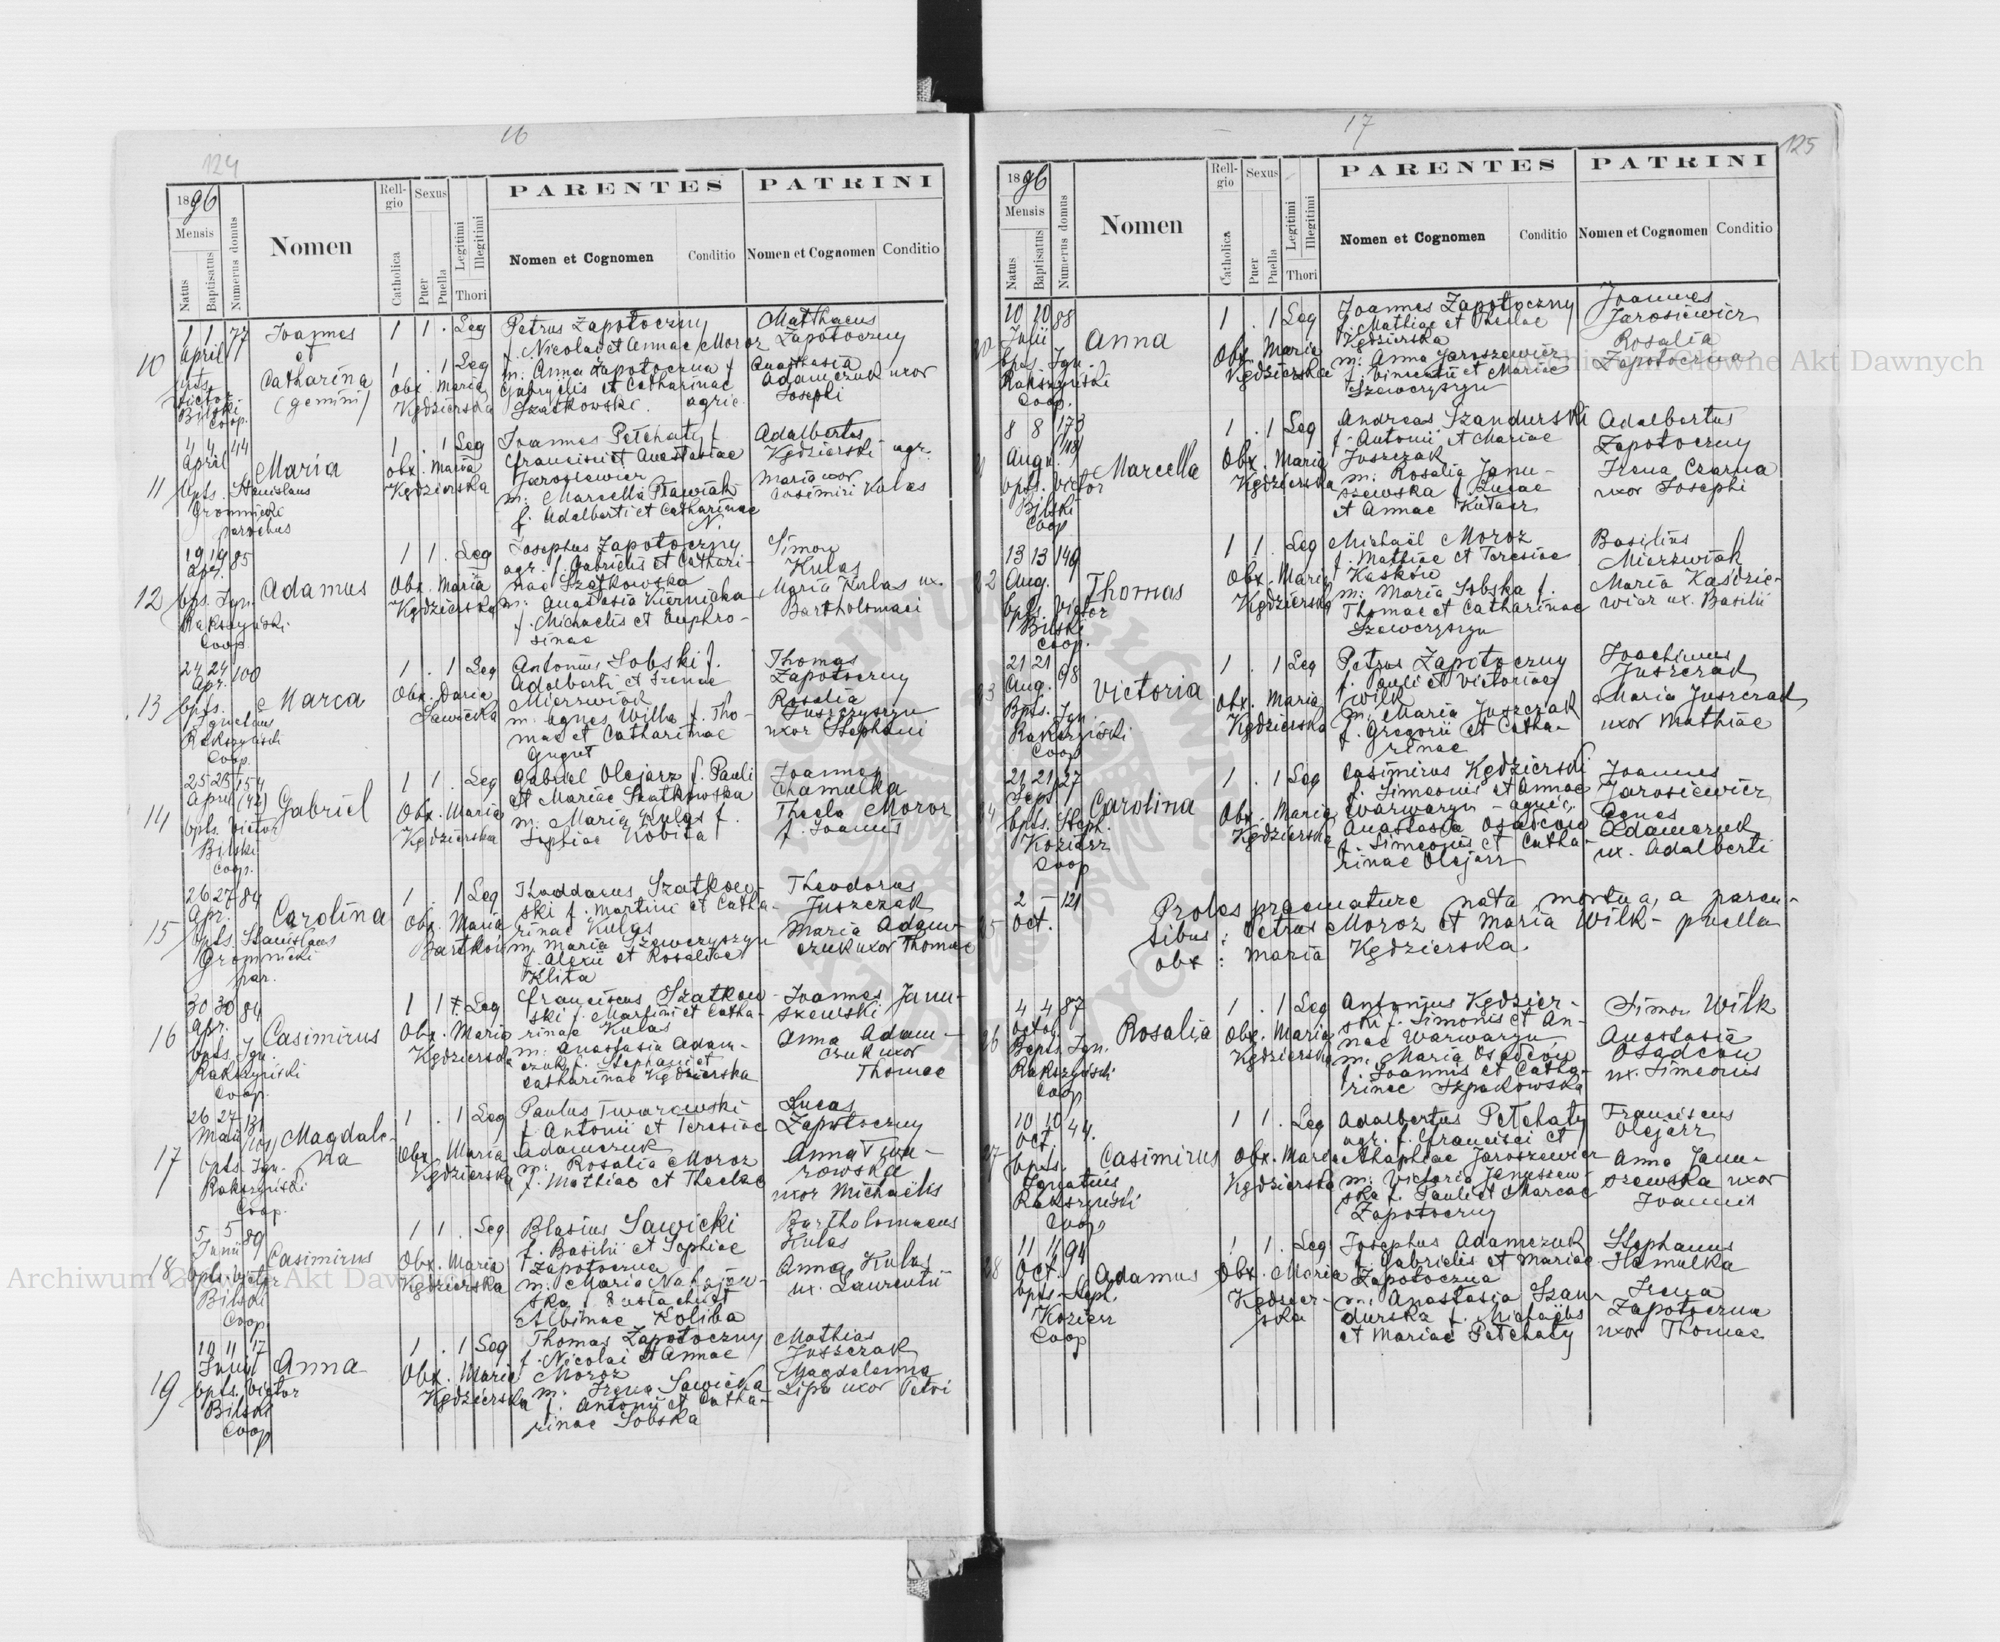 16
124
1896
Mensis
Natus
Baptisatus
Numerus domus
Nomen
Religio
Catholica
Sexus
Puer
Puella
Legitimi
Illegitimi
Thori
PARENTES
Nomen et Cognomen
Conditio
PATRINI
Nomen et Cognomen
Conditio
10
1 1 77
April
bpts. Victor
Bilski
Coop.
Joannes
et
Catharina
(gemini)
1 1 . Leg
1 . 1 Leg
Obx. Maria
Kędzierska
Petrus Zapotoczny
f. Nicolai et Annae Moroz
m. Anna Zapotoczna f.
Gabryelis et Catharinae
Szatkowski. agric.
Matthaeus
Zapotoczny
Anasthasia
Adamczuk uxor
Josephi
11
4 4 44
April
bpts. Stanislaus
Gromnicki
parochus
Maria
1 . 1 Leg
Obx. Maria
Kędzierska
Joannes Petchaty f.
Francisci et Anastasiae
Jarosiewicz
m. Marcella Prawiak
f. Adalberti et Catharinae
N.
Adalbertus
Kędzierski agr.
Maria uxor
Casimiri Kulas
12
19 19 85
Apr.
bps. Ign.
Rakszyński
Coop
Adamus
1 1 . Leg
Obx. Maria
Kędzierska
Josephus Zapotoczny
agr. f. Gabrielis et Cathari-
nae Szatkowska
m. Anastasia Kiernicka
f. Michaelis et Euphro-
sinae
Simon
Kulas
Maria Kulas ux.
Bartholomaei
13
24 24 100
Apr.
bpts.
Ignatius
Rakszyński
Coop.
Marca
1 . 1 Leg
Obx. Daria
Sawicka
Antonius Sobski f.
Adalberti et Irenae
Mierzwiak
m. Agnes Wilk f. Tho-
mae et Catharinae
Gugut
Thomas
Zapotoczny
Rosalia
Juszczyszyn
uxor Stephani
14
25 25 154
April (42)
bpts. Victor
Bilski
Coop.
Gabriel
1 1 . Leg
Obx. Maria
Kędzierska
Gabriel Olejarz f. Pauli
et Mariae Szatkowska
m. Maria Kulas f.
Sophiae Kobita
Joannes
Chamulka
Thecla Moroz
f. Joannis
15
26 27 84
Apr.
bpts. Stanislaus
Gromnicki
par.
Carolina
1 . 1 Leg
Obx. Maria
Bartków
Thaddaeus Szatkow-
ski f. Martini et Catha-
rinae Kulas
m. Maria Szewczyszyn
f. Alexii et Rosaliae
Klita
Theodorus
Juszczak
Maria Adam-
czuk uxor Thomae
16
30 30 84
Apr.
bpts. Ign.
Rakszyński
Coop.
Casimirus
1 1 . Leg
Obx. Maria
Kędzierska
Franciscus Szatkow-
ski f. Martini et Catha-
rinae Kulas
m. Anastasia Adam-
czuk f. Stephani et
Catharinae Kędzierska
Joannes Janu-
szewski
Anna Adam-
czuk uxor
Thomae
17
26 27 131
Maii
bpts. Ign.
Rakszyński
Coop.
Magdale-
na
1 . 1 Leg
Obx. Maria
Kędzierska
Paulus Twarowski
f. Antonii et Teresiae
Adamczuk
m. Rosalia Moroz
f. Mathiae et Theclae
Lucas
Zapotoczny
Anna Twa-
rowska
uxor Michaëlis
18
5 5 89
Junii
bpts. Victor
Bilski
Coop.
Casimirus
1 1 . Leg
Obx. Maria
Kędzierska
Blasius Sawicki
f. Basilii et Sophiae
Zapotoczna
m. Maria Nahajow-
ska f. Eustachii et
Albinae Koliba
Bartholomaeus
Kulas
Anna Kulas
ux. Laurentii
19
10 11 17
Junii
bpts. Victor
Bilski
Coop
Anna
1 . 1 Leg
Obx. Maria
Kędzierska
Thomas Zapotoczny
f. Nicolai et Annae
Moroz
m. Irena Sawicka
f. Antonii et Catha-
rinae Sobska
Mathias
Juszczak
Magdalenna
Lipa uxor Petri
17
125
1896
Mensis
Natus
Baptisatus
Numerus domus
Nomen
Religio
Catholica
Sexus
Puer
Puella
Legitimi
Illegitimi
Thori
PARENTES
Nomen et Cognomen
Conditio
PATRINI
Nomen et Cognomen
Conditio
20
10 10 88
Julii
bpts. Ign.
Rakszyński
Coop.
Anna
1 . 1 Leg
Obx. Maria
Kędzierska
Joannes Zapotoczny
f. Mathiae et Theclae
Kędzierska
m. Anna Jaroszewicz
f. Vincentii et Mariae
Szewczyszyn
Joannes
Jarosiewicz
Rosalia
Zapotoczna
8 8 173
Augu. (118)
bpts. Victor
Bilski
Coop
Marcella
1 . 1 Leg
Obx. Maria
Kędzierska
Andreas Szandurski
f. Antonii et Mariae
Juszczak
m. Rosalia Janu-
szewska f. Lucae
et Annae Kutasz
Adalbertus
Zapotoczny
Irena Czarna
uxor Josephi
22
13 13 149
Aug.
bpts. Victor
Bilski
Coop.
Thomas
1 1 . Leg
Obx. Maria
Kędzierska
Michaël Moroz
f. Mathiae et Teresiae
Kasków
m. Maria Sobska f.
Thomae et Catharinae
Szewczyszyn
Basilius
Mierzwiak
Maria Kaśdzie-
wiar ux. Basilii
23
21 21 98
Aug.
Bpts. Ign.
Rakszyński
Coop
Victoria
1 . 1 Leg
Obx. Maria
Kędzierska
Petrus Zapotoczny
f. Pauli et Victoriae
Wilk
m. Maria Juszczak
f. Gregorii et Catha-
rinae
Joachimus
Juszczak
Maria Juszczak
uxor Mathiae
24
21 21 27
Sept.
bpts. Steph.
Koziarz
Coop
Carolina
1 . 1 Leg
Obx. Maria
Kędzierska
Casimirus Kędzierski
f. Simeonis et Annae
Warwaryn - agric.
Anastasia Osadców
f. Simeonis et Catha-
rinae Olejarz
Joannes
Jarosiewicz
Agnes
Adamczuk
ux. Adalberti
25
2 - 121
Oct.
Proles praemature nata mortua, a paren-
tibus: Petrus Moroz et Maria Wilk - puella
obx: Maria Kędzierska.
26
4 4 87
Octob
Bapts. Ign.
Rakszyński
Coop
Rosalia
1 . 1 Leg
Obx. Maria
Kędzierska
Antonius Kędzier-
ski f. Simonis et An-
nae Warwaryn
m. Maria Osadców
f. Joannis et Catha-
rinae Szpakowska
Simon Wilk
Anastasia
Osadców
ux. Simeonis
27
10 10 44.
Oct.
bpts.
Ignatius
Rakszyński
Coop
Casimirus
1 1 . Leg
Obx. Maria
Kędzierska
Adalbertus Petchaty
agr. f. Francisci et
Ahaphiae Jaroszewicz
m. Victoria Januszew-
ska f. Pauli et Marcae
Zapotoczny
Franciscus
Olejarz
Anna Janu-
szewska uxor
Joannis
28
11 11 94
Oct.
bpts. Step.
Koziarz
Coop
Adamus
1 1 . Leg
Obx. Maria
Kędzier-
ska
Josephus Adamczuk
f. Gabrielis et Mariae
Zapotoczna
m. Anastasia Szan-
durska f. Michaëlis
et Mariae Petchaty
Stephanus
Hamulka
Irena
Zapotoczna
uxor Thomae
Archiwum Główne Akt Dawnych
Archiwum Główne Akt Dawnych
ARCHIWUM GŁÓWNE AKT DAWNYCH